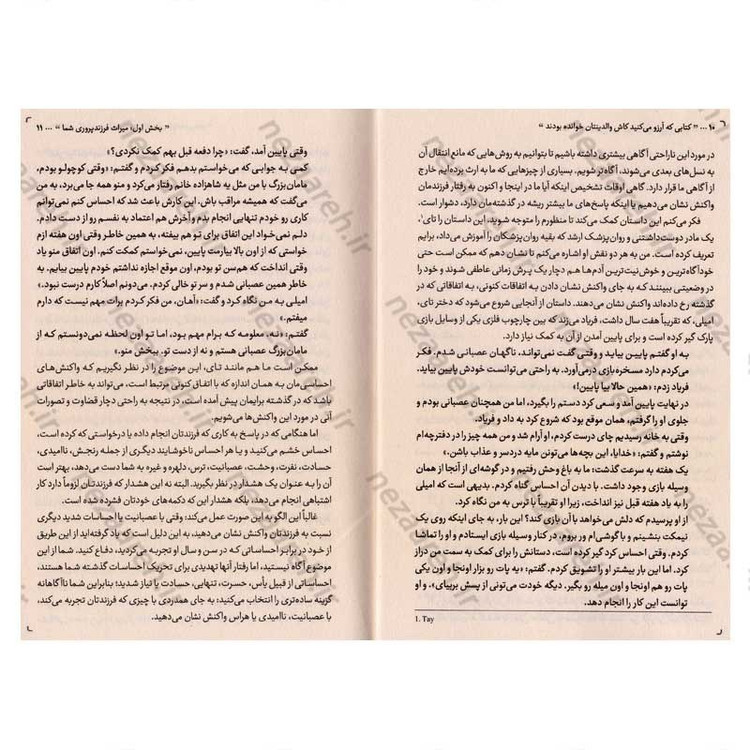 ۱۰ ... " کتابی که آرزو می‌کنید کاش والدینتان خوانده بودند "
در مورد این ناراحتی آگاهی بیشتری داشته باشیم تا بتوانیم به روش‌هایی که مانع انتقال آن
به نسل‌های بعدی می‌شوند، آگاه‌تر شویم. بسیاری از چیزهایی که ما به ارث برده‌ایم خارج
از آگاهی ما قرار دارد. گاهی اوقات تشخیص اینکه آیا ما در اینجا و اکنون به رفتار فرزندمان
واکنش نشان می‌دهیم یا اینکه پاسخ‌های ما بیشتر ریشه در گذشته‌مان دارد، دشوار است.
فکر می‌کنم این داستان کمک می‌کند تا منظورم را متوجه شوید، این داستان را تای۱،
یک مادر دوست‌داشتنی و روان‌پزشک ارشد که بقیه روان‌پزشکان را آموزش می‌داد، برایم
تعریف کرده است. من به هر دو نقش او اشاره می‌کنم تا نشان دهم که ممکن است حتی
خودآگاه‌ترین و خوش‌نیت‌ترین آدم‌ها هم دچار یک پرش زمانی عاطفی شوند و خود را
در وضعیتی ببینند که به جای واکنش نشان دادن به اتفاقات کنونی، به اتفاقاتی که در
گذشته رخ داده‌اند واکنش نشان می‌دهند. داستان از آنجایی شروع می‌شود که دختر تای،
امیلی، که تقریباً هفت سال داشت، فریاد می‌زند که بین چارچوب فلزی یکی از وسایل بازی
پارک گیر کرده است و برای پایین آمدن از آن به کمک نیاز دارد.
به او گفتم بیاید و وقتی گفت نمی‌تواند، ناگهان عصبانی شدم. فکر
می‌کردم دارد مسخره‌بازی درمی‌آورد، به راحتی می‌توانست خودش پایین بیاید.
فریاد زدم: «همین حالا بیا پایین!»
در نهایت پایین آمد و سعی کرد دستم را بگیرد، اما من همچنان عصبانی بودم و
جلوی او را گرفتم، همان موقع بود که شروع کرد به داد و فریاد.
وقتی به خانه رسیدیم چای درست کردم، او آرام شد و من همه چیز را در دفترچه‌ام
نوشتم و گفتم: «خدایا، این بچه‌ها می‌تونن مایه دردسر و عذاب باشن.»
یک هفته به سرعت گذشت: ما به باغ وحش رفتیم و در گوشه‌ای از آنجا از همان
وسیله بازی وجود داشت. با دیدن آن احساس گناه کردم. بدیهی است که امیلی
را به یاد هفته قبل نیز انداخت، زیرا او تقریباً با ترس به من نگاه کرد.
از او پرسیدم که دلش می‌خواهد با آن بازی کند؟ این بار، به جای اینکه روی یک
نیمکت بنشینم و با گوشی‌ام ور بروم، در کنار وسیله بازی ایستادم و او را تماشا
کردم. وقتی احساس کرد گیر کرده است، دستانش را برای کمک به سمت من دراز
کرد. اما این بار بیشتر او را تشویق کردم. گفتم: «یه پات رو بزار اونجا و اون یکی
پات رو هم اونجا و اون میله رو بگیر. دیگه خودت می‌تونی از پسش بربیای». و او
توانست این کار را انجام دهد.
1. Tay
" بخش اول: میراث فرزندپروری شما " ... ۱۱
وقتی پایین آمد، گفت: «چرا دفعه قبل بهم کمک نکردی؟»
کمی به جوابی که می‌خواستم بدهم فکر کردم و گفتم: «وقتی کوچولو بودم،
مامان‌بزرگ با من مثل یه شاهزاده خانم رفتار می‌کرد و منو همه جا می‌برد، به من
می‌گفت که همیشه مراقب باش. این کارش باعث شد که احساس کنم نمی‌توانم
کاری رو خودم تنهایی انجام بدم و آخرش هم اعتماد به نفسم رو از دست دادم.
دلم نمی‌خواد این اتفاق برای تو هم بیفته، به همین خاطر وقتی اون هفته ازم
خواستی که از اون بالا بیارمت پایین، نمی‌خواستم کمکت کنم. اون اتفاق منو یاد
وقتی انداخت که هم‌سن تو بودم، اون موقع اجازه نداشتم خودم پایین بیایم. به
خاطر همین عصبانی شدم و سر تو خالی کردم. می‌دونم اصلاً کارم درست نبود.»
امیلی به من نگاه کرد و گفت: «آهان، من فکر کردم برات مهم نیست که دارم
میفتم.»
گفتم: «نه، معلومه که برام مهم بود، اما تو اون لحظه نمی‌دونستم که از
مامان‌بزرگ عصبانی هستم و نه از دست تو. ببخش منو.»
ممکن است ما هم مانند تای، این موضوع را در نظر نگیریم که واکنش‌های
احساسی‌مان به همان اندازه که با اتفاق کنونی مرتبط است، می‌تواند به خاطر اتفاقاتی
باشد که در گذشته برایمان پیش آمده است، در نتیجه به راحتی دچار قضاوت و تصورات
آنی در مورد این واکنش‌ها می‌شویم.
اما هنگامی که در پاسخ به کاری که فرزندتان انجام داده یا درخواستی که کرده است،
احساس خشم می‌کنید و یا هر احساس ناخوشایند دیگری از جمله رنجش، ناامیدی،
حسادت، نفرت، وحشت، عصبانیت، ترس، دلهره و غیره به شما دست می‌دهد، بهتر است
آن را به عنوان یک هشدار در نظر بگیرید. البته نه این هشدار که فرزندتان لزوماً دارد کار
اشتباهی انجام می‌دهد، بلکه هشدار این که دکمه‌های خودتان فشرده شده است.
غالباً این الگو به این صورت عمل می‌کند: وقتی با عصبانیت یا احساسات شدید دیگری
نسبت به فرزندتان واکنش نشان می‌دهید، به این دلیل است که یاد گرفته‌اید از این طریق
از خود در برابر احساساتی که در سن و سال او تجربه می‌کردید، دفاع کنید. شما از این
موضوع آگاه نیستید، اما رفتار آنها تهدیدی برای تحریک احساسات گذشته شما هستند،
احساساتی از قبیل یأس، حسرت، تنهایی، حسادت یا نیاز شدید؛ بنابراین شما ناآگاهانه
گزینه ساده‌تری را انتخاب می‌کنید: به جای همدردی با چیزی که فرزندتان تجربه می‌کند،
با عصبانیت، ناامیدی یا هراس واکنش نشان می‌دهید.
nezareh.ir